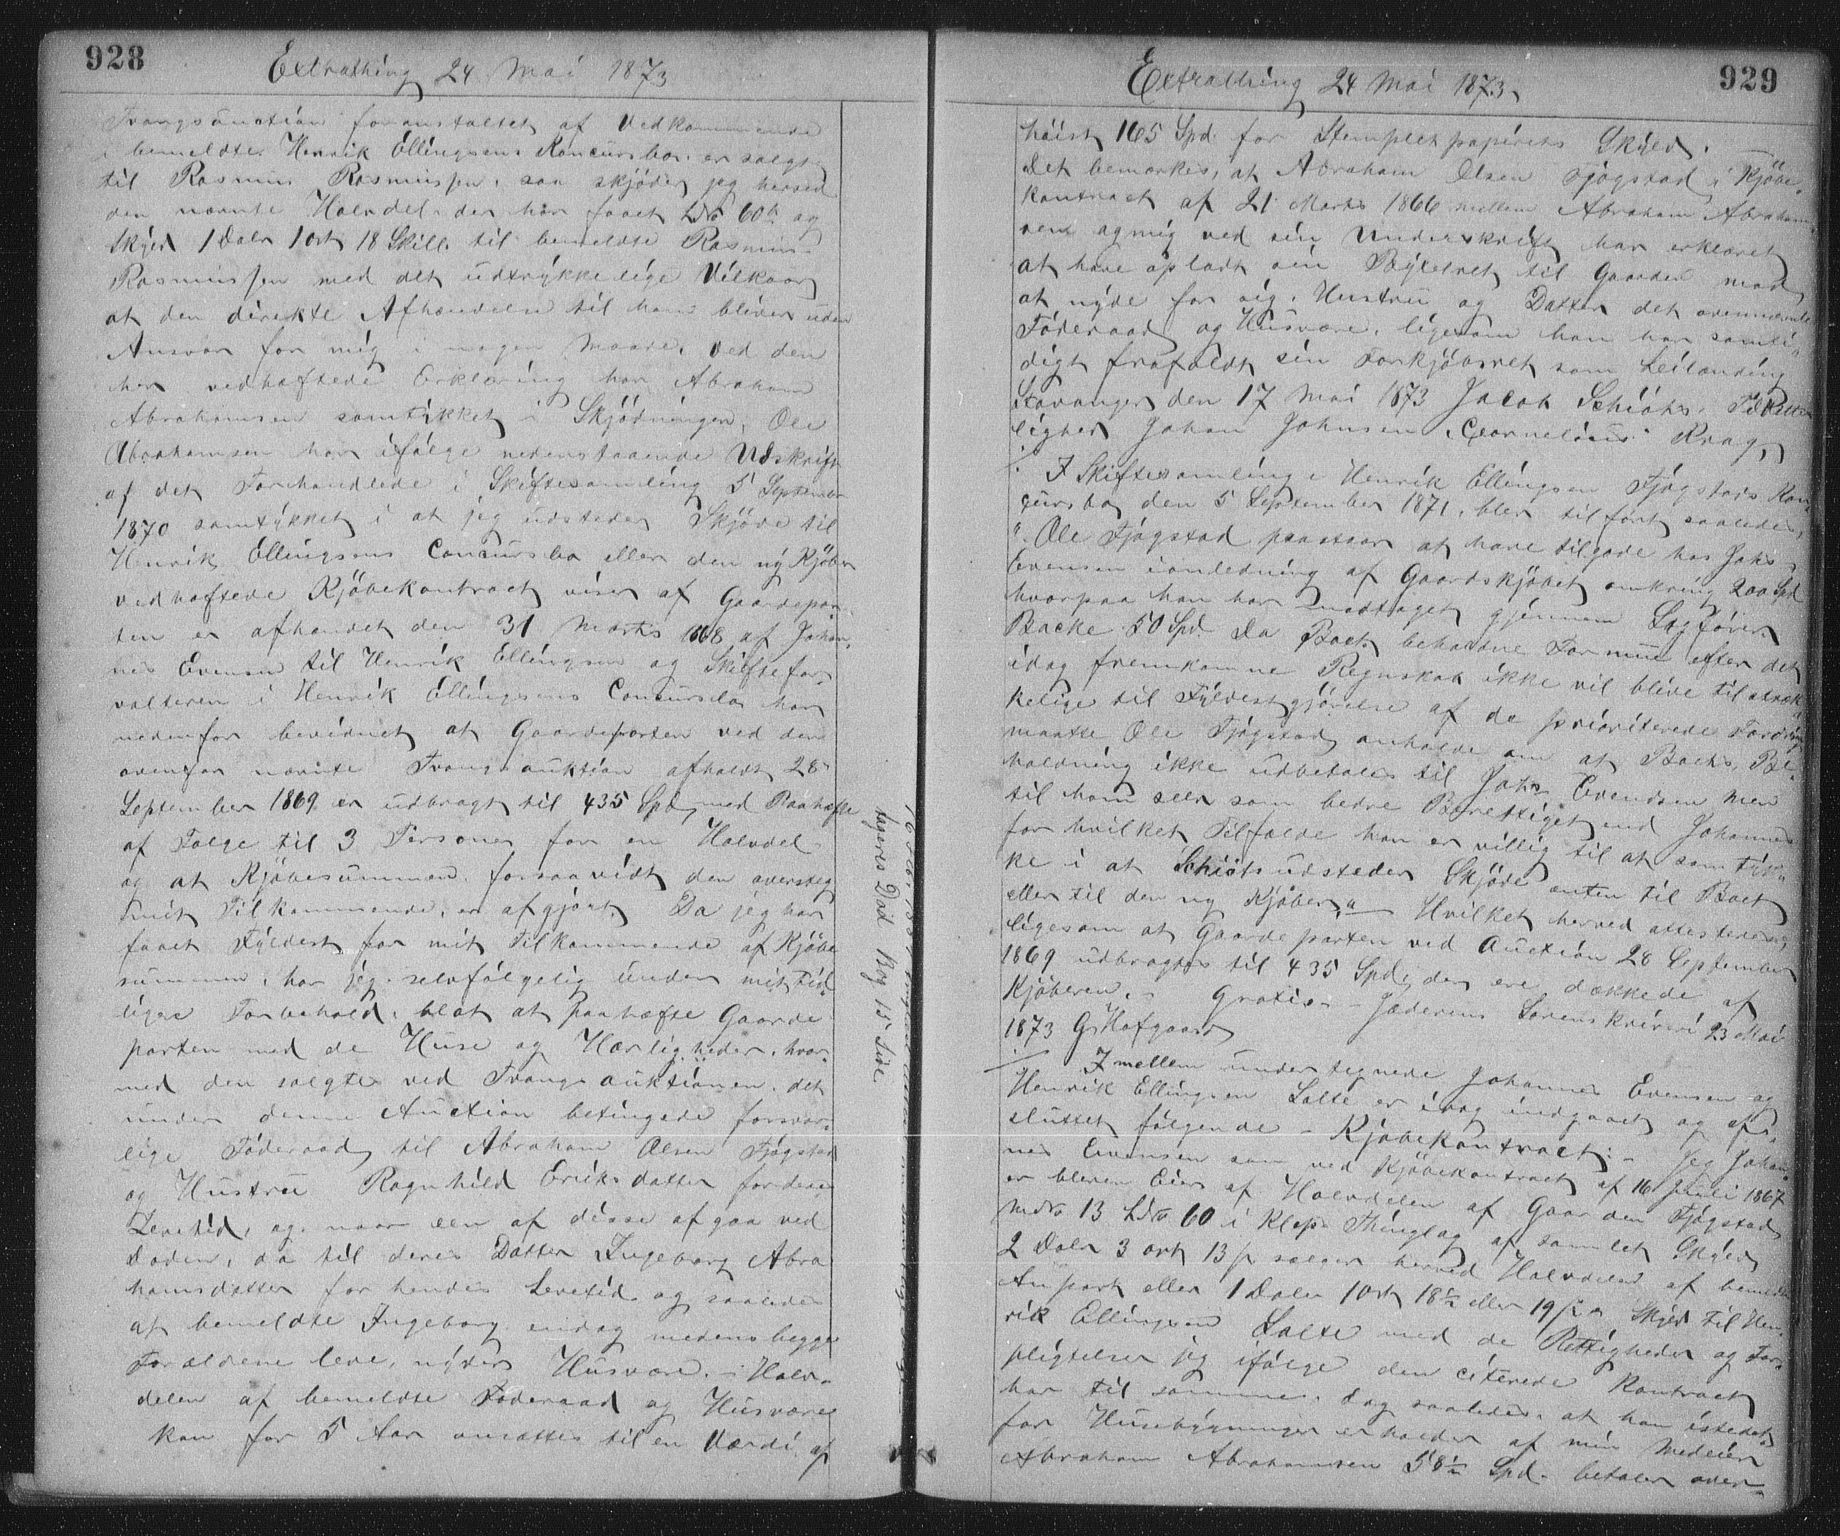 928
Extrathing 24 Mai 1873
Tvangsauction foranstaltet af Vedkommende
i bemeldte Henrik Ellingsens Koncursbo er solgt
til Rasmus Rasmussen, saa skjöder jeg herved
den nævnte Halvdel der har faaet LNo 60b og
Skyld 1 Daler 1 ort 18 Skill. til bemeldte Rasmus
Rasmussen med det udtrykkelige Vilkaar
at den direkte Afhændelse til ham bliver uden
Ansvar for mig i nogen Maade. Ved den
her vedhæftede Erklæring har Abraham
Abrahamsen samtykket i Skjödningen, Ole
Abrahamsen har ifölge nedenstaaende Udskrift
af det Forhandlede i Skiftesamling 5 September
1870 samtykket i at jeg udsteder Skjöde til
Henrik Ellingsens Concursbo eller den ny Kjöber
vedhæftede Kjöbekontract viser af Gaardepar-
ten er afhændet den 31 Marts 1868 af Johan-
nes Evensen til Henrik Ellingsen og Skiftefor-
valteren i Henrik Ellingsens Concursbo har
nedenfor bevidnet at Gaardeparten ved den
ovenfor nævnte Tvangsauktion afholdt 28
September 1869 er udbragt til 435 Spd, med Paahæfte
af Folge til 3 Personer for en Halvdel
og at Kjöbesummen, forsaavidt den oversteg
mit Tilkommende, er afgjort. Da jeg har
faaet Fyldest for mit Tilkommende af Kjöbe
summen, har jeg selvfölgelig under mit Tid-
ligere Forbehold, blot at paahæfte Gaarde
parten med de Huse og Herligheder, hvor-
med den solgtes ved Tvangsauktionen, det
under denne Auction betingede forsvar-
lige Föderaad til Abraham Olsen Tjögstad
og Hustru Ragnhild Eriksdatter for deres
Levetid, og naar een af disse afgaa ved
Döden, da til deres Datter Ingeborg Abra
hamsdatter for hendes Levetid og saaledes
at bemeldte Ingeborg endog medens begge
Forældrene leve, nyder Husvære. Halv-
delen af bemeldte Föderaad og Husvære
kan for 5 Aar ansættes til en Værdi af
tageres Död Bog 15 Side
929
Extrathing 24 Mai 1873
höist 165 Spd. for Stempletpapirets Skyld.
Det bemærkes, at Abraham Olsen Tjögstad i Kjöbe-
kontract af 21 Marts 1866 mellem Abraham Abraham-
sen og mig ved sin Underskrift har erklæret
at have opladt sin Bygselret til Gaarden mod
at nyde for sig, Hustru og Datter det ovennævnte
Föderaad og Husvære, ligesom han har samti-
digt frafaldt sin Forkjöbsret som Leilænding
Stavanger den 17 Mai 1873 Jacob Schiötz. Til Vitter
lighed Johan Johnsen Cornelius Krag,
I Skiftesamling i Henrik Ellingsen Tjögstads Kon-
cursbo den 5 September 1871, blev tilfört saaledes,
". Ole Tjögstad paastaar at have tilgode hos Johs
Evensen i anledning af Gaardskjöbet omkring 200 Spd
hvorpaa han har modtaget gjennem Sagförer
Backe 50 Spd. Da Boets beholdne Formue efter det
idag fremkomne Regnskab ikke vil blive tilstræk
kelige til Fyldestgjörelse af de prioriterede Fordring
maatte Ole Tjögstad anholde om at Boets Be-
holdning ikke udbetales til Johs Evendsen men
til ham selv som bedre Berettiget end Johannes
for hvilket Tilfælde han er villig til at samtyk-
ke i at Schiötz udsteder Skjöde enten til Boet
eller til den ny Kjöber." Hvilket herved attesteres
ligesom at Gaardeparten ved Auction 28 September
1869 udbragtes til 435 Spd, der ere dækkede af
Kjöberen. – Gratis – Jæderens Sorenskriveri 23 Mai
1873 G. Hofgaard
Imellem undertegnede Johannes Evensen og
Henrik Ellingsen Salte er idag indgaaet og af-
sluttet fölgende – Kjöbekontract: – Jeg Johan-
nes Evensen som ved Kjöbekontract af 16 Juli 1867
er bleven Eier af Halvdelen af Gaarden Tjögstad
MNo 13 LNo 60 i Klep Thinglag af samlet Skyld
2 Daler 3 ort 13 β sælger herved Halvdelen af bemeldte
Anpart eller 1 Daler 1 ort 18½ eller 19 β Skyld til Hen-
rik Ellingsen Salte med de Rettigheder og For-
pligtelser jeg ifölge den citerede Kontract
har til samme. dog saaledes, at han istedet
for Husebygninger erholder af min Medeier
Abraham Abrahamsen 58½ Spd. betaler over-